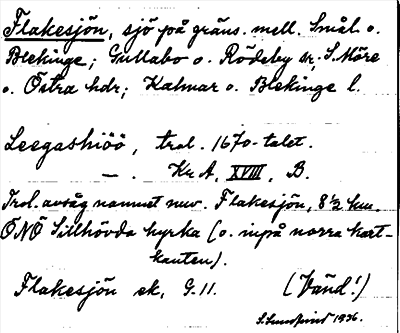 Flakesjön, sjö på gräns. mell. Smål. o.
Blekinge; Gullabo o. Rödeby sr; S. Möre
o. Östra hdr; Kalmar o. Blekinge l.
Leegashiöö, trol. 1670-talet.
— . Kr A, XVIII, B.
Trol. avsåg namnet nuv. Flakesjön, 8 ½ km.
ÖNÖ Sillhövda kyrka (o. inpå norra kart-
kanten).
Flakesjön ek, G. 11. (Vänd!)
S. Lundqvist 1936.